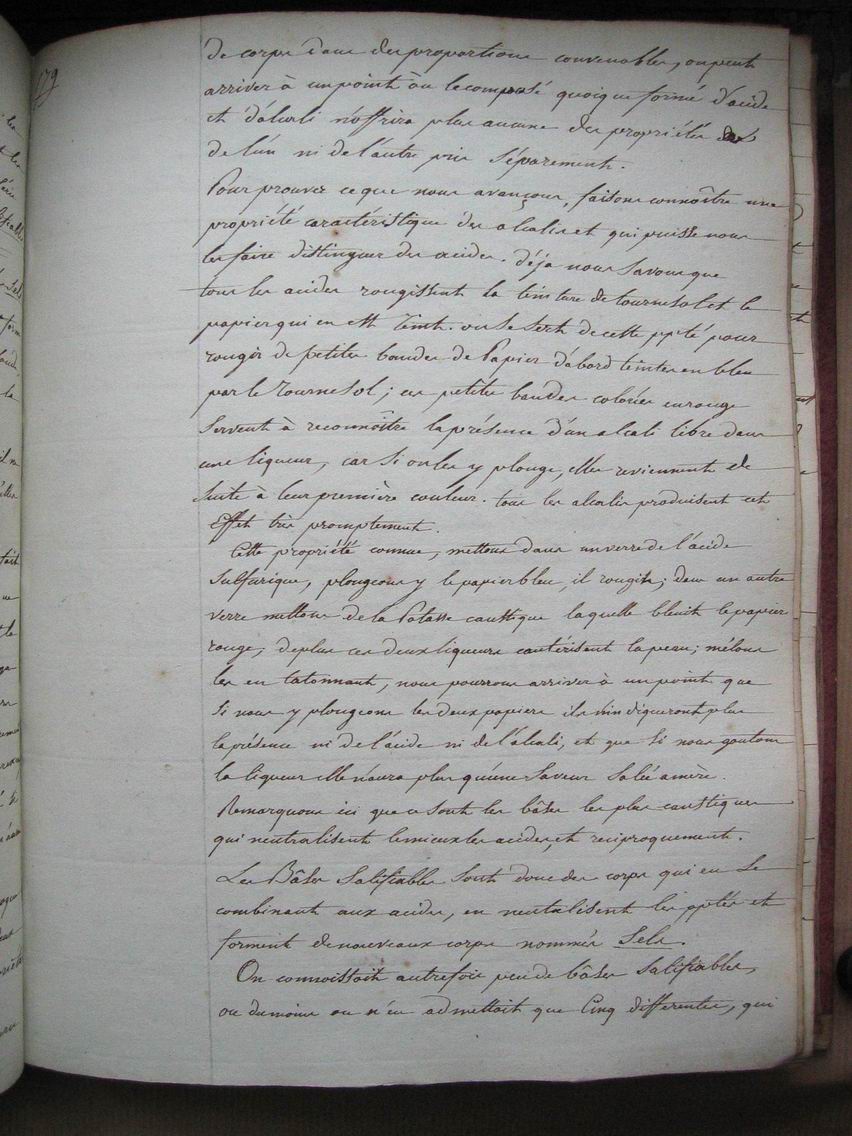 179
de corps dans des proportions convenables, on peut
arriver à un point où le composé quoique formé d'acide
et d'alcali n'offrira plus aucune des propriétés
de l'un ni de l'autre pris séparement.
Pour prouver ce que nous avançons, faisons connoître une
propriété caractéristique des alcalis et qui puisse nous
les faire distinguer des acides. déja nous savons que
tous les acides rougissent la teinture de tournesol et le
papier qui en est teint. on se sert de cette ppté pour
rougir de petites bandes de Papier d'abord teintes en bleu
par le tournesol; ces petites bandes colorées en rouge
servent à reconnoître la présence d'un alcali libre dans
une liqueur, car si on les y plonge, elles reviennent de
suite à leur première couleur. tous les alcalis produisent cet
Effet très promptement.
Cette propriété connue, mettons dans un verre de l'acide
Sulfurique, plongeons y le papier bleu, il rougit; dans un autre
verre mettons de la Potasse caustique laquelle bleuit le papier
rouge; de plus ces deux liqueurs cautérisent la peau; mêlons
les en tatonnant, nous pourrons arriver à un point que
si nous y plongeons les deux papiers ils n'indiqueront plus
la présence ni de l'acide ni de l'alcali, et que si nous goutons
la liqueur elle n'aura plus qu'une saveur salée amère.
Remarquons ici que ce sont les bâses les plus caustiques
qui neutralisent le mieux les acides, et reciproquement.
Les Bâses Salifiables sont donc des corps qui en se
combinant aux acides, en neutralisent les pptés et
forment de nouveaux corps nommés Sels.
On connoissoit autrefois peu de bâses salifiables,
ou du moins on n'en admettoit que Cinq differentes, qui